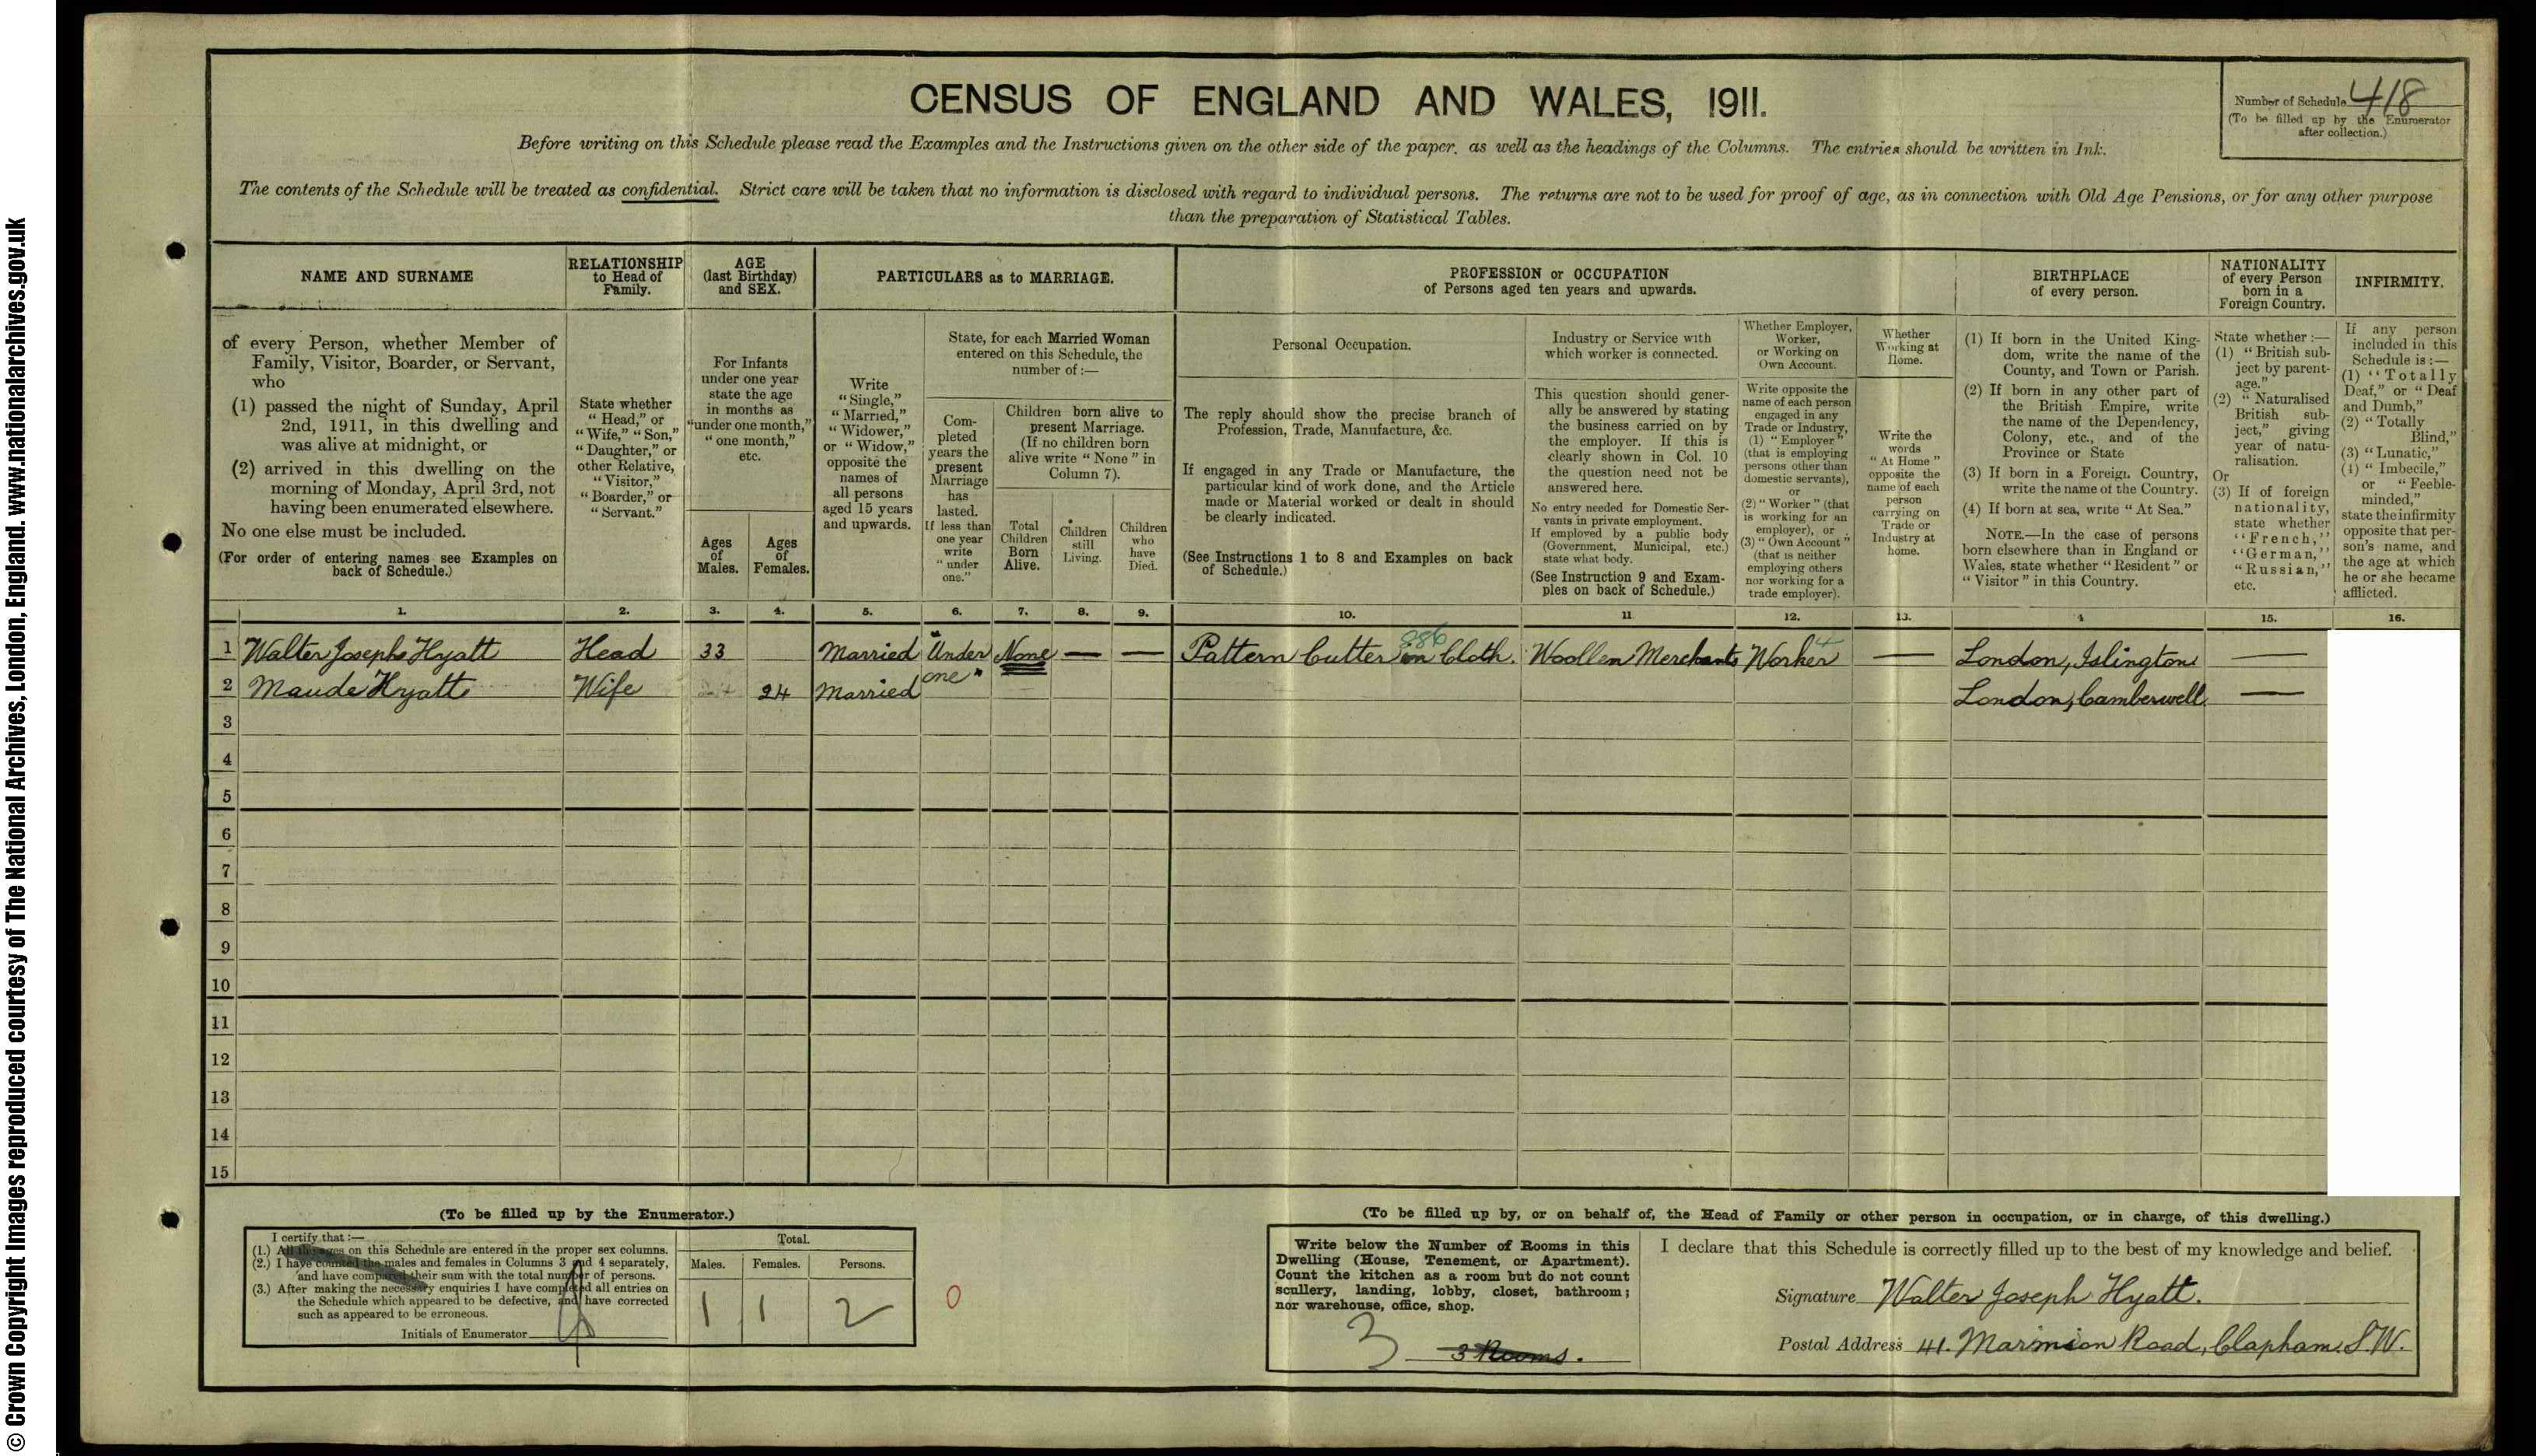 © Crown Copyright Images reproduced courtesy of The National Archives, London, England. www.nationalarchives.gov.uk
CENSUS OF ENGLAND AND WALES, 1911.
Number of Schedule 418
(To be filled up by the Enumerator
after collection.)
Before writing on this Schedule please read the Examples and the Instructions given on the other side of the paper, as well as the headings of the Columns. The entries should be written in Ink.
The contents of the Schedule will be treated as confidential. Strict care will be taken that no information is disclosed with regard to individual persons. The returns are not to be used for proof of age, as in connection with Old Age Pensions, or for any other purpose
than the preparation of Statistical Tables.
NAME AND SURNAME
of every Person, whether Member of
Family, Visitor, Boarder, or Servant,
who
(1) passed the night of Sunday, April
2nd, 1911, in this dwelling and
was alive at midnight, or
(2) arrived in this dwelling on the
morning of Monday, April 3rd, not
having been enumerated elsewhere.
No one else must be included.
(For order of entering names see Examples on
back of Schedule.)
RELATIONSHIP
to Head of
Family.
State whether
"Head," or
"Wife," "Son,"
"Daughter," or
other Relative,
"Visitor,"
"Boarder," or
"Servant."
AGE
(last Birthday)
and SEX.
For Infants
under one year
state the age
in months as
"under one month,"
"one month,"
etc.
Ages
of
Males.
Ages
of
Females.
PARTICULARS as to MARRIAGE.
Write
"Single,"
"Married,"
"Widower,"
or "Widow,"
opposite the
names of
all persons
aged 15 years
and upwards.
State, for each Married Woman
entered on this Schedule, the
number of:—
Com-
pleted
years the
present
Marriage
has
lasted.
If less than
one year
write
"under
one."
Children born alive to
present Marriage.
(If no children born
alive write "None" in
Column 7).
Total
Children
Born
Alive.
Children
still
Living.
Children
who
have
Died.
PROFESSION or OCCUPATION
of Persons aged ten years and upwards.
Personal Occupation.
The reply should show the precise branch of
Profession, Trade, Manufacture, &c.
If engaged in any Trade or Manufacture, the
particular kind of work done, and the Article
made or Material worked or dealt in should
be clearly indicated.
(See Instructions 1 to 8 and Examples on back
of Schedule.)
Industry or Service with
which worker is connected.
This question should gener-
ally be answered by stating
the business carried on by
the employer. If this is
clearly shown in Col. 10
the question need not be
answered here.
No entry needed for Domestic Ser-
vants in private employment.
If employed by a public body
(Government, Municipal, etc.)
state what body.
(See Instruction 9 and Exam-
ples on back of Schedule.)
Whether Employer,
Worker,
or Working on
Own Account.
Write opposite the
name of each person
engaged in any
Trade or Industry,
(1) "Employer"
(that is employing
persons other than
domestic servants),
or
(2) "Worker" (that
is working for an
employer), or
(3) "Own Account"
(that is neither
employing others
nor working for a
trade employer).
Whether
Working at
Home.
Write the
words
"At Home"
opposite the
name of each
person
carrying on
Trade or
Industry at
home.
BIRTHPLACE
of every person.
(1) If born in the United King-
dom, write the name of the
County, and Town or Parish.
(2) If born in any other part of
the British Empire, write
the name of the Dependency,
Colony, etc., and of the
Province or State
(3) If born in a Foreign Country,
write the name of the Country.
(4) If born at sea, write "At Sea."
NOTE.—In the case of persons
born elsewhere than in England or
Wales, state whether "Resident" or
"Visitor" in this Country.
NATIONALITY
of every Person
born in a
Foreign Country.
State whether:—
(1) "British sub-
ject by parent-
age."
(2) "Naturalised
British sub-
ject," giving
year of natu-
ralisation.
Or
(3) If of foreign
nationality,
state whether
"French,"
"German,"
"Russian,"
etc.
INFIRMITY.
If any person
included in this
Schedule is:—
(1) "Totally
Deaf," or "Deaf
and Dumb,"
(2) "Totally
Blind,"
(3) "Lunatic,"
(4) "Imbecile,"
or "Feeble-
minded,"
state the infirmity
opposite that per-
son's name, and
the age at which
he or she became
afflicted.
1. 2. 3. 4. 5. 6. 7. 8. 9. 10. 11 12. 13. 4 15. 16.
1 Walter Joseph Hyatt Head 33 Married "Under None — — Pattern Cutter on Cloth. 986 Woollen Merchants Worker 4 — London, Islington —
one"
2 Maude Hyatt Wife 24 Married London, Camberwell —
3
4
5
6
7
8
9
10
11
12
13
14
15
(To be filled up by the Enumerator.)
I certify that:—
(1.) All the ages on this Schedule are entered in the proper sex columns.
(2.) I have counted the males and females in Columns 3 and 4 separately,
and have compared their sum with the total number of persons.
(3.) After making the necessary enquiries I have completed all entries on
the Schedule which appeared to be defective, and have corrected
such as appeared to be erroneous.
Initials of Enumerator
Total.
Males. Females. Persons.
1 1 2
0
(To be filled up by, or on behalf of, the Head of Family or other person in occupation, or in charge, of this dwelling.)
Write below the Number of Rooms in this
Dwelling (House, Tenement, or Apartment).
Count the kitchen as a room but do not count
scullery, landing, lobby, closet, bathroom;
nor warehouse, office, shop.
3 3 Rooms.
I declare that this Schedule is correctly filled up to the best of my knowledge and belief.
Signature Walter Joseph Hyatt.
Postal Address 41. Marmion Road, Clapham. S.W.